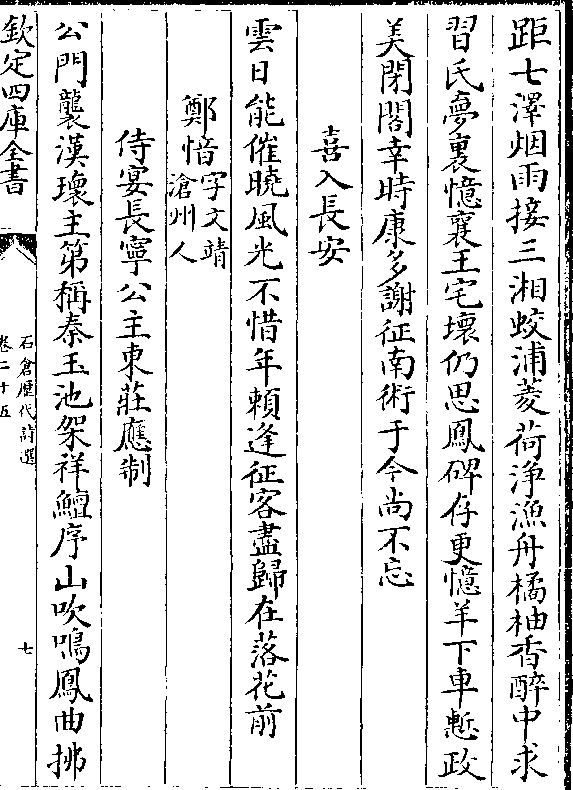 距七澤烟雨接三湘蛟浦菱荷淨漁舟橘柚香醉中求
習氏夢裏憶襄王宅壞仍思鳳碑存更憶羊下車慙政
美閉閣幸時康多謝征南術于今尚不忘
喜入長安
雲日能催曉風光不惜年賴逢征客盡歸在落花前
鄭愔字文靖滄州人
侍宴長寧公主東莊應制
公門襲漢瓌主第稱秦玉池架祥鱣序山吹鳴鳳曲拂
欽定四庫全書
石倉歷代詩選
卷二十五
七